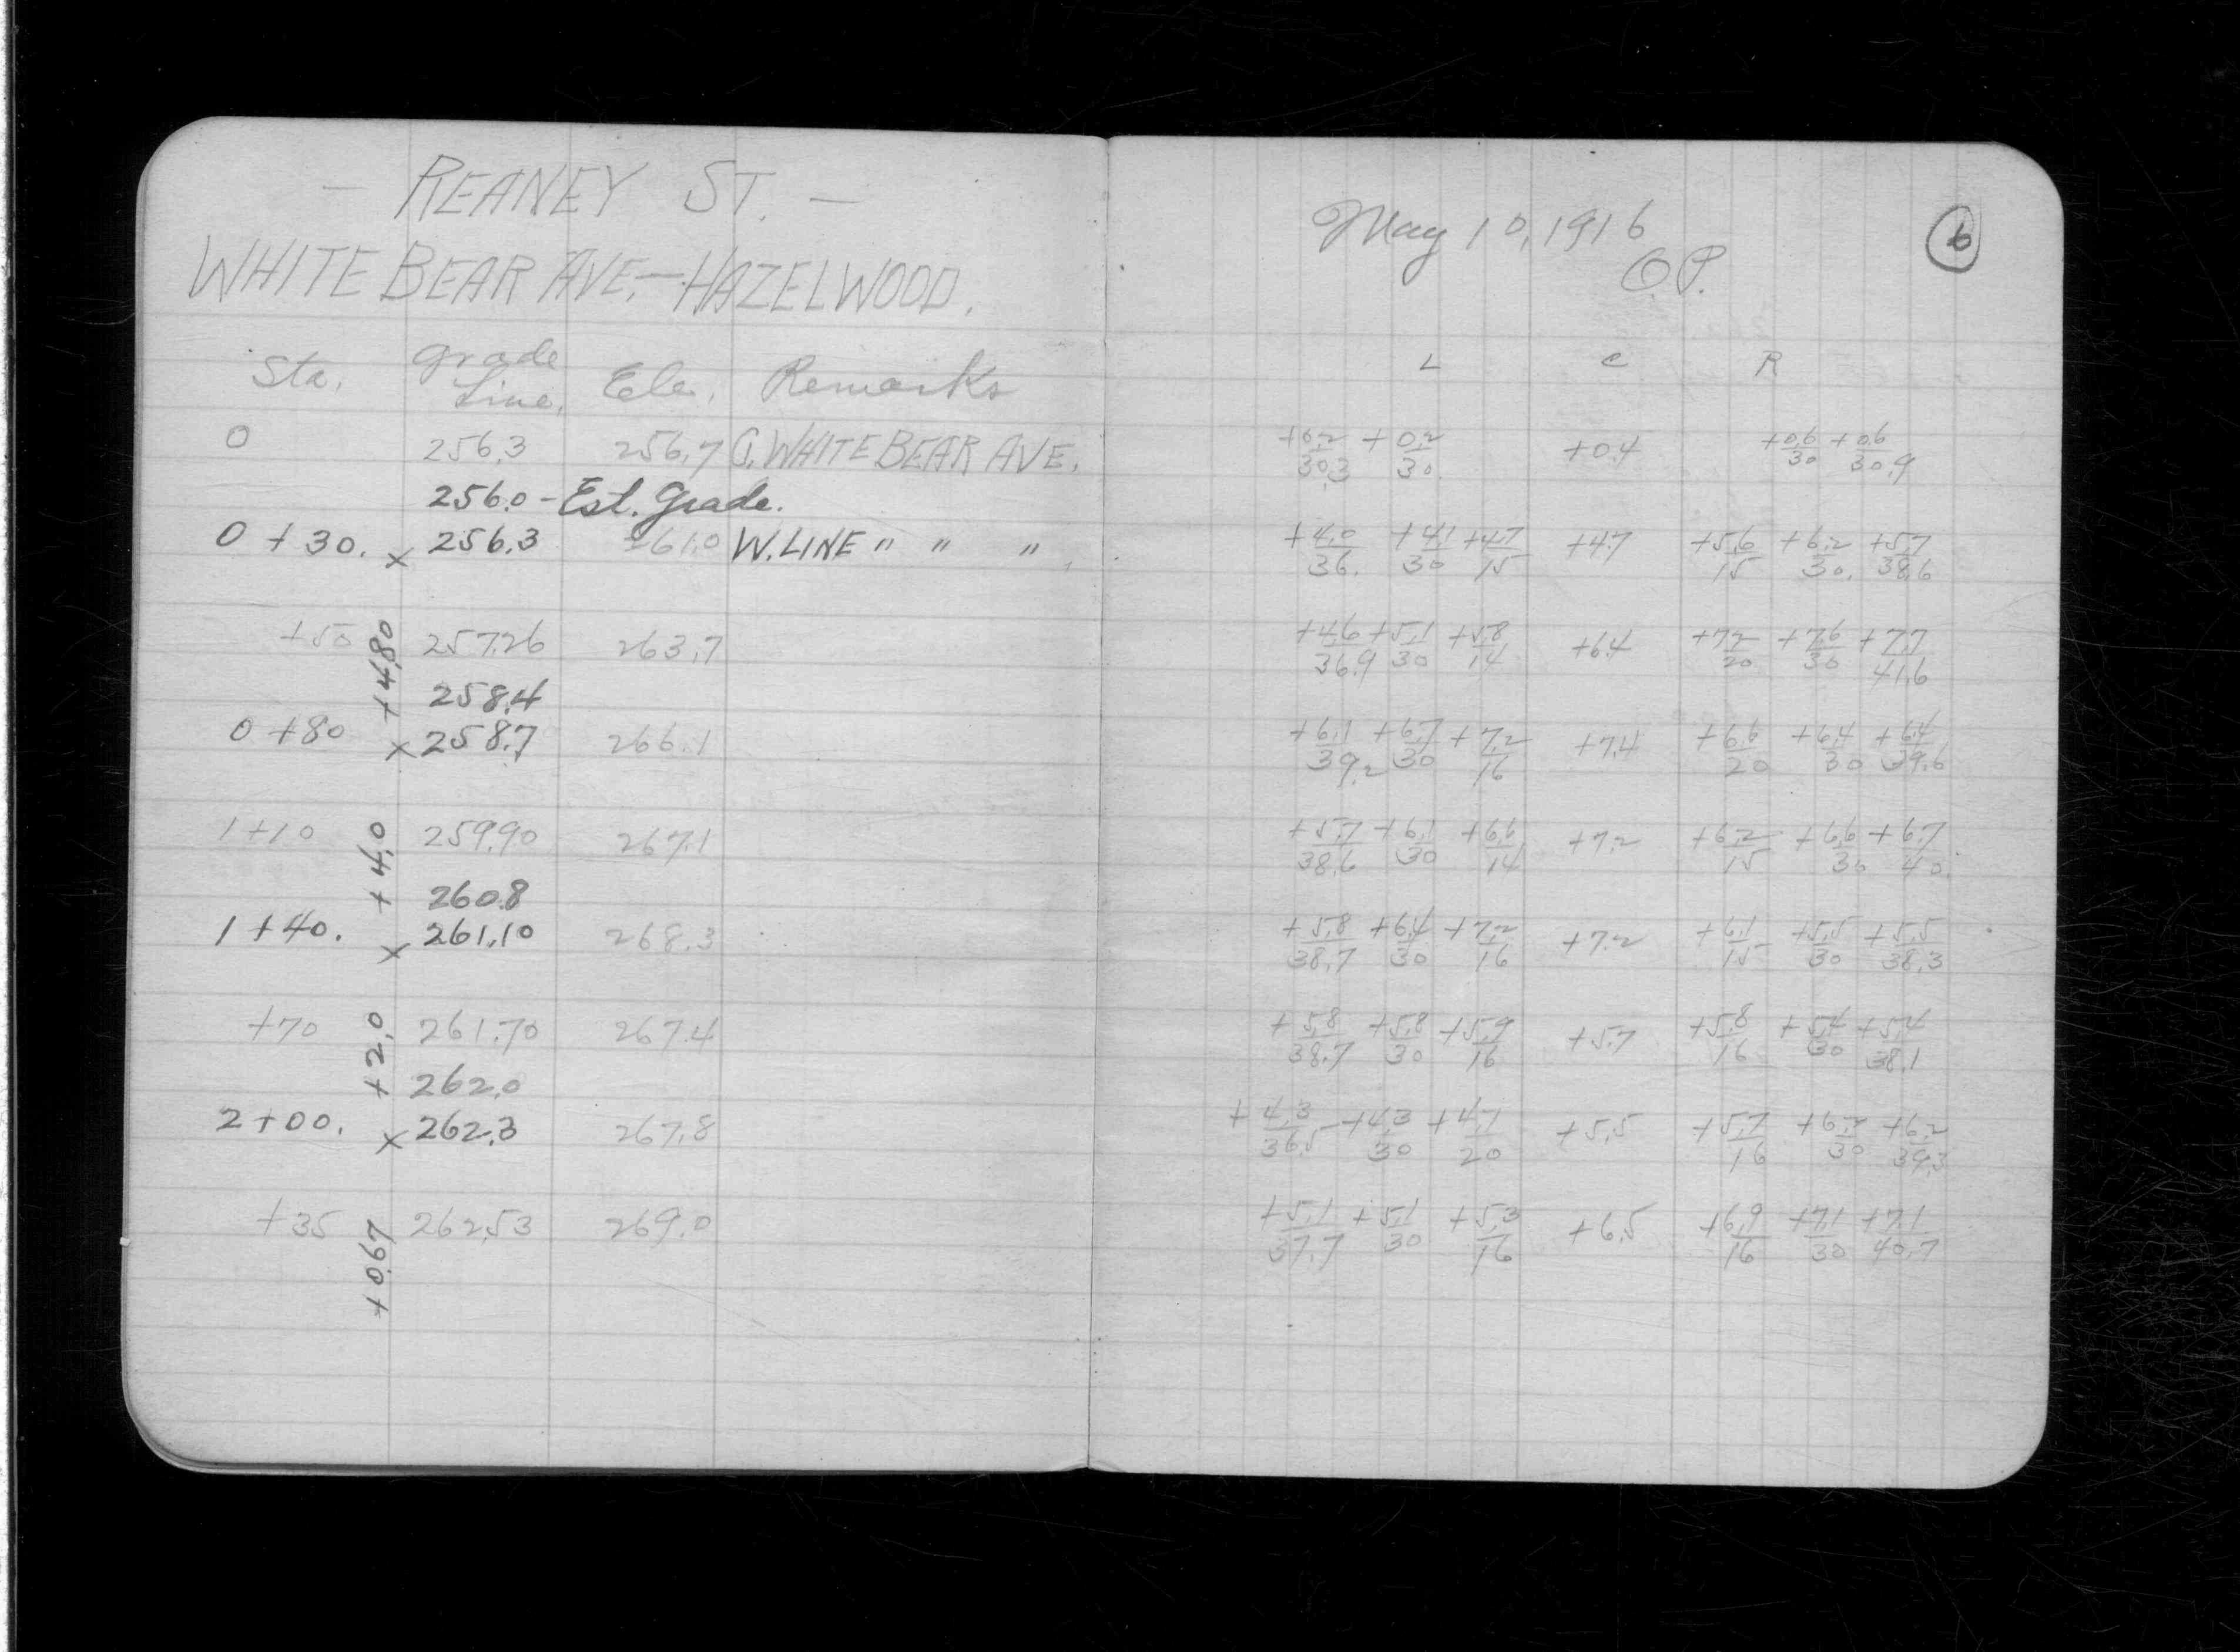 - REANEY ST. -
WHITE BEAR AVE. - HAZELWOOD.
Sta. grade Line. Ele. Remarks
0 256.3 256.7 C. WHITE BEAR AVE.
256.0 - Est. Grade.
0 + 30. x 256.3 261.0 W. LINE " " "
+50 257.26 263.7
+4.80
258.4
0 +80 x 258.7 266.1
1 +10 259.90 267.1
+4.0
260.8
1 +40. x 261.10 268.3
+70 261.70 267.4
+2.0
262.0
2 +00. x 262.3 267.8
+35 262.53 269.0
+0.67
May 10, 1916
O.P.
6
L C R
+0.2/30.3 +0.2/30. +0.4 +0.6/30 +0.6/30.9
+4.0/36. +4.1/30 +4.7/15 +4.7 +5.6/15 +6.2/30. +5.7/38.6
+4.6/36.9 +5.1/30 +5.8/14 +6.4 +7.2/20 +7.6/30 +7.7/41.6
+6.1/39.2 +6.7/30 +7.2/16 +7.4 +6.6/20 +6.4/30 +6.4/39.6
+5.7/38.6 +6.1/30 +6.6/14 +7.2 +6.2/15 +6.6/30 +6.7/40.
+5.8/38.7 +6.4/30 +7.2/16 +7.2 +6.1/15 +5.5/30 +5.5/38.3
+5.8/38.7 +5.8/30 +5.9/16 +5.7 +5.8/16 +5.4/30 +5.4/38.1
+4.3/36.5 +4.3/30 +4.7/20 +5.5 +5.7/16 +6.2/30 +6.2/39.3
+5.1/37.7 +5.1/30 +5.3/16 +6.5 +6.9/16 +7.1/30 +7.1/40.7